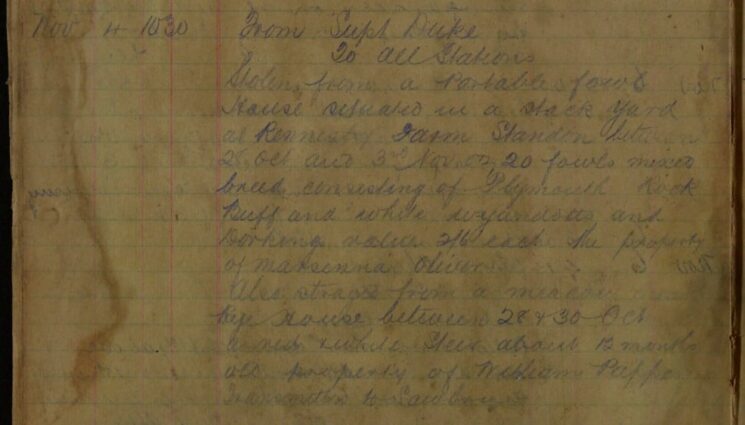 Nov 4 1030 From Supt Duke
To all Stations
Stolen from a Portable fowl
House situated in a Stack Yard
at Farm Standon between
28 Oct and 3rd Nov 20 fowls mixed
breed consisting of Plymouth Rock
Buff and white wyandotts and
Dorking value 2/6 each the property
of Oliver
Also strayed from a meadow
House between 28 & 30 Oct
a red & white Steer about 12 months
old property of William
Transmitted to